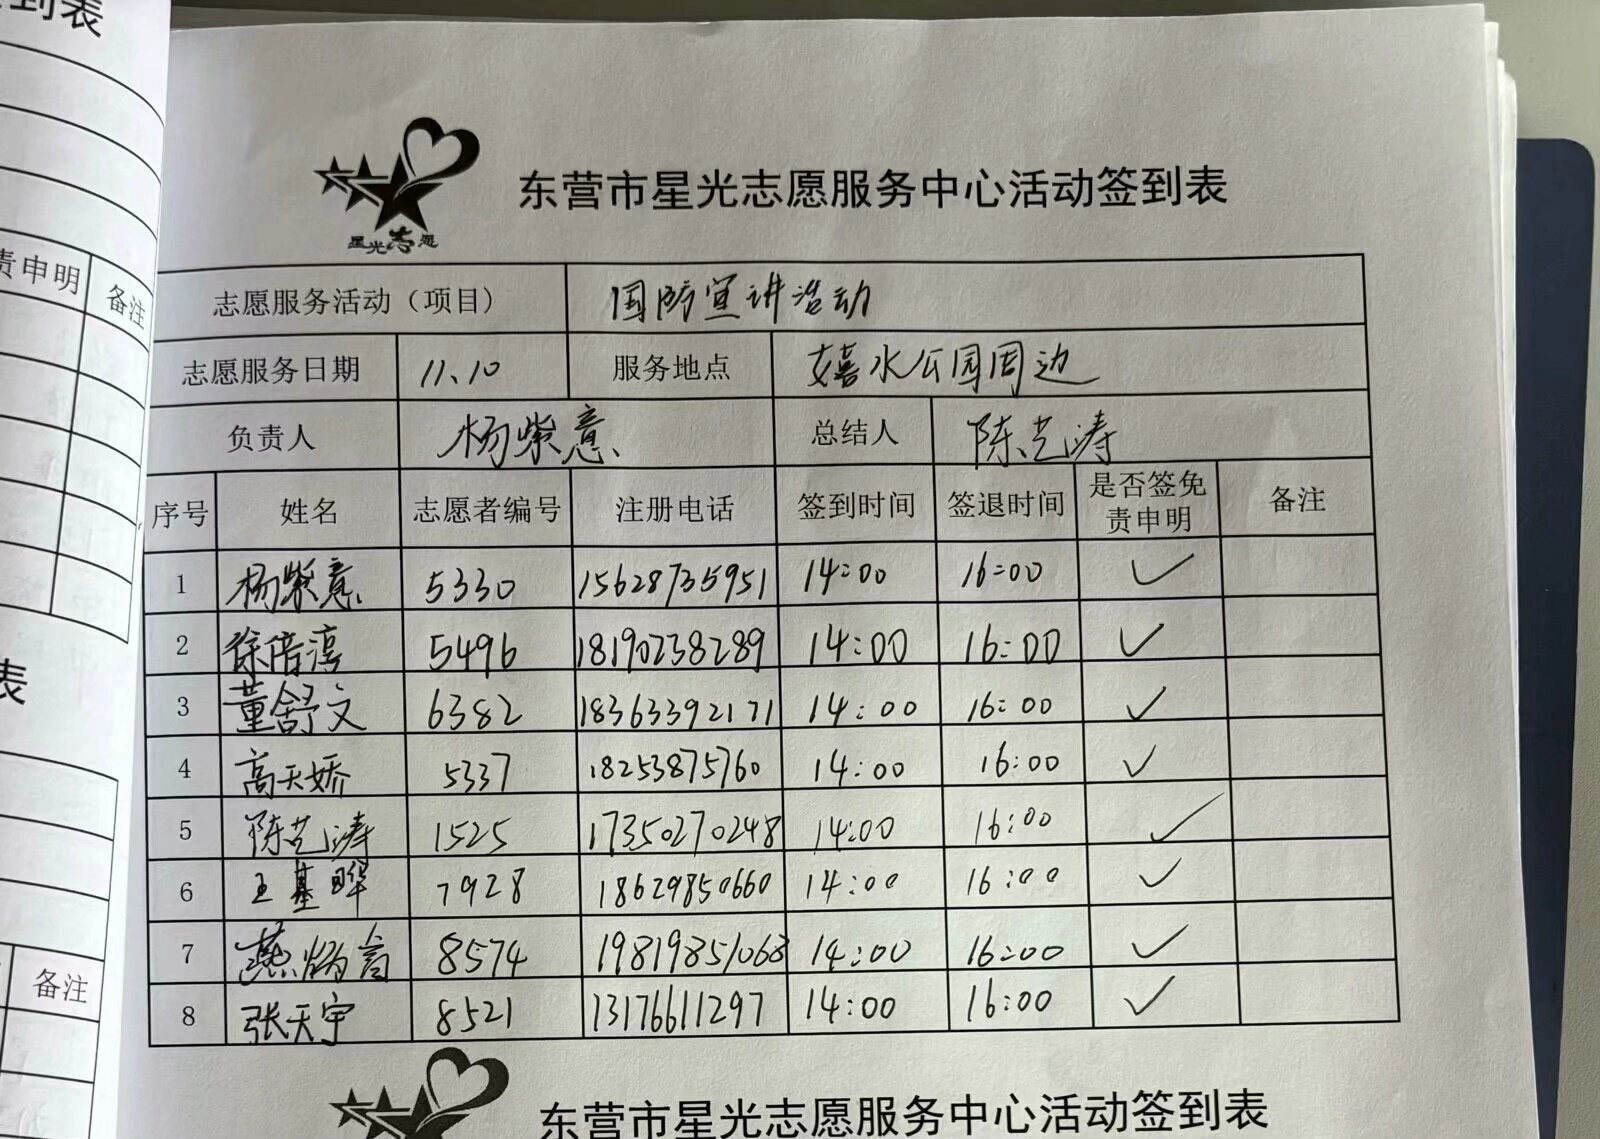 到表
责申明 备注
表
备注
星光志愿
东营市星光志愿服务中心活动签到表
志愿服务活动（项目） 国防宣讲活动
志愿服务日期 11、10 服务地点 嬉水公园周边
负责人 杨紫意 总结人 陈艺涛
序号 姓名 志愿者编号 注册电话 签到时间 签退时间 是否签免责申明 备注
1 杨紫意 5330 15628735951 14:00 16:00 ✓
2 徐倍淳 5496 18190238289 14:00 16:00 ✓
3 董舒文 6382 18363392171 14:00 16:00 ✓
4 高天娇 5337 18253875760 14:00 16:00 ✓
5 陈艺涛 1525 17350270248 14:00 16:00 ✓
6 王基晔 7928 18629850660 14:00 16:00 ✓
7 燕炳言 8574 19819851068 14:00 16:00 ✓
8 张天宇 8521 13176611297 14:00 16:00 ✓
东营市星光志愿服务中心活动签到表